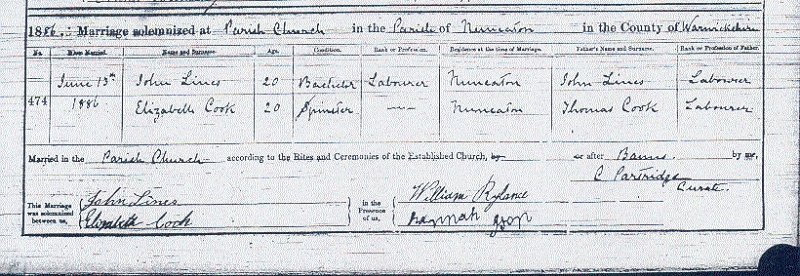 1886. Marriage solemnized at Parish Church in the Parish of Nuneaton in the County of Warwickshire
No. When Married. Name and Surname. Age. Condition. Rank or Profession. Residence at the time of Marriage. Father's Name and Surname. Rank or Profession of Father.
June 13th John Lines 20 Bachelor Labourer Nuneaton John Lines Labourer
474 1886 Elizabeth Cook 20 Spinster — Nuneaton Thomas Cook Labourer
Married in the Parish Church according to the Rites and Ceremonies of the Established Church, by or after Banns. by me,
C Partridge
Curate.
This Marriage was solemnized between us, John Lines Elizabeth Cook in the Presence of us, William Rylance Hannah